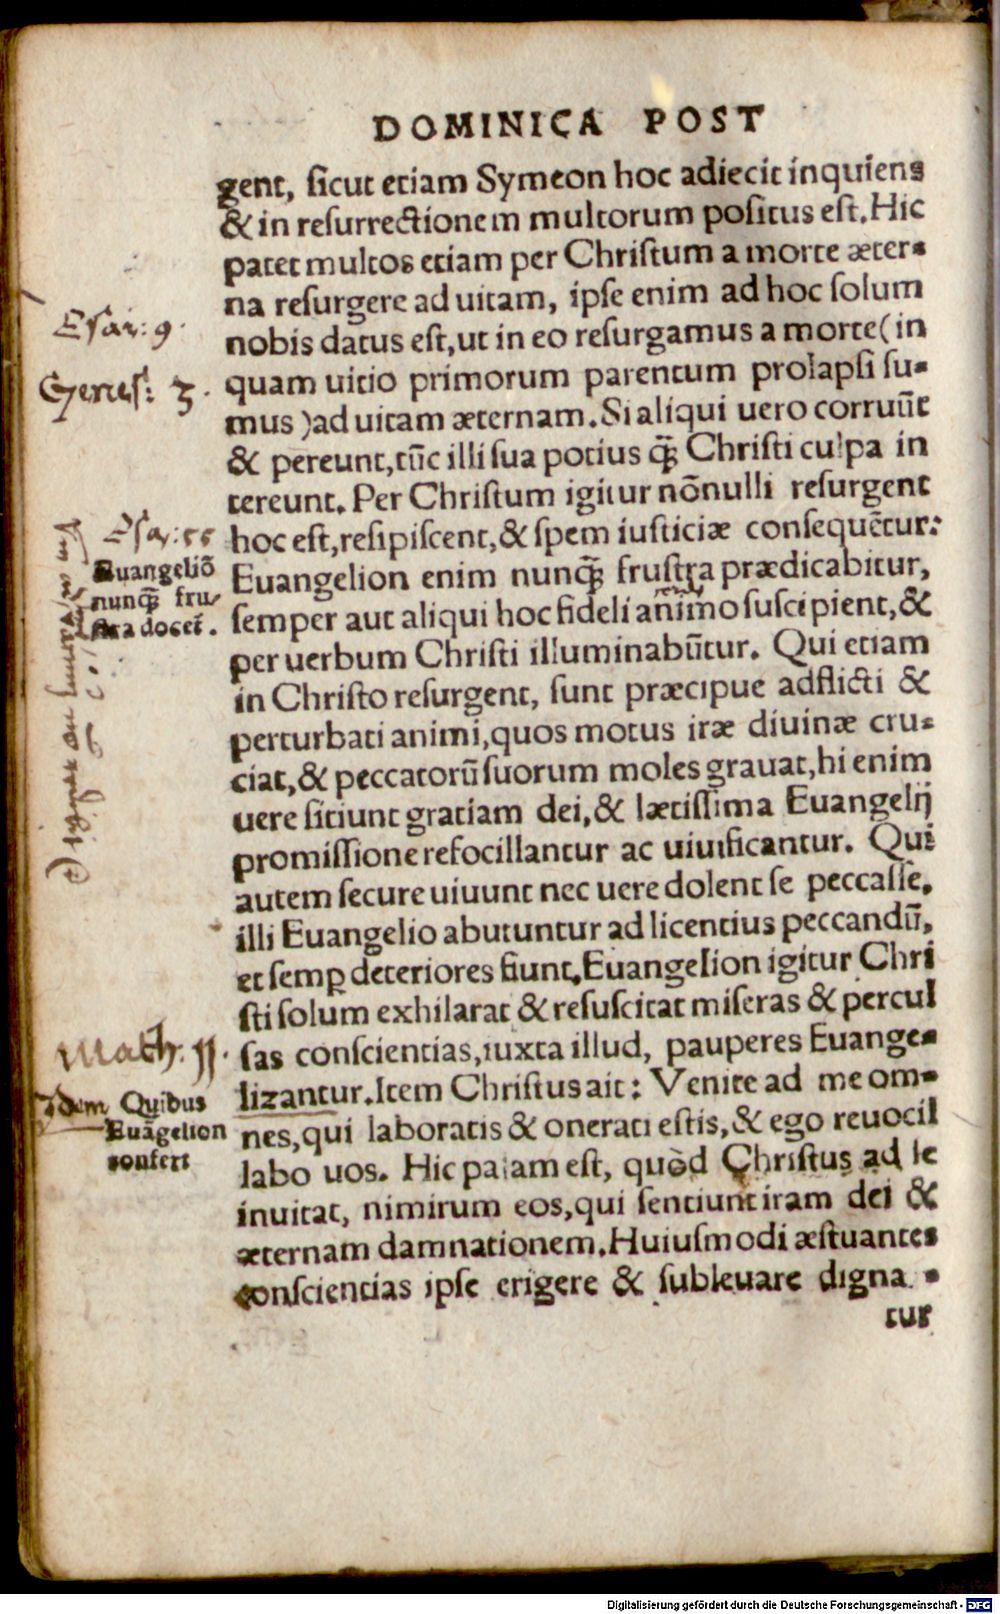 DOMINICA POST
gent, sicut etiam Symeon hoc adiecit inquiens
& in resurrectionem multorum positus est. Hic
patet multos etiam per Christum a morte æter-
na resurgere ad uitam, ipse enim ad hoc solum
Esai: 9.
nobis datus est, ut in eo resurgamus a morte (in
Genes: 3.
quam uitio primorum parentum prolapsi su-
mus) ad uitam æternam. Si aliqui uero corruūt
& pereunt, tūc illi sua potius q̃ʒ Christi culpa in
tereunt. Per Christum igitur nōnulli resurgent
Esa: 55
hoc est, resipiscent, & spem iusticiæ consequētur:
Euangeliō
nunq̃ʒ fru-
stra docet̃.
Euangelion enim nunq̃ʒ frustra prædicabitur,
semper aut aliqui hoc fideli animo suscipient, &
per uerbum Christi illuminabūtur. Qui etiam
in Christo resurgent, sunt præcipue adflicti &
perturbati animi, quos motus iræ diuinæ cru-
ciat, & peccatorū suorum moles grauat, hi enim
uere sitiunt gratiam dei, & lætissima Euangelij
promissione refocillantur ac uiuificantur. Qui
autem secure uiuunt nec uere dolent se peccasse,
illi Euangelio abutuntur ad licentius peccandū,
et semꝑ deteriores fiunt. Euangelion igitur Chri
sti solum exhilarat & resuscitat miseras & percul
Math: 11.
sas conscientias, iuxta illud, pauperes Euange-
Idem Quibus
Euāgelion
confert
lizantur. Item Christus ait: Venite ad me om-
nes, qui laboratis & onerati estis, & ego reuocil
labo uos. Hic palam est, quòd Christus ad se
inuitat, nimirum eos, qui sentiunt iram dei &
æternam damnationem. Huiusmodi æstuantes
conscientias ipse erigere & subleuare digna-
tur
Digitalisierung gefördert durch die Deutsche Forschungsgemeinschaft - DFG